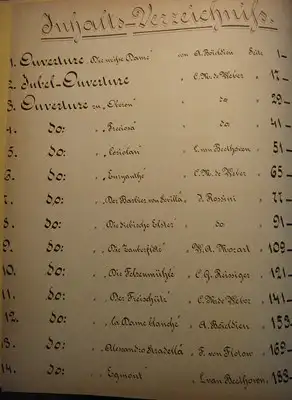 Inhalts-Verzeichniss.
1. Ouverture „Die weisse Dame" von A. Boieldien Seite 1-
2. Jubel-Ouverture " C. M. de Weber " 17-
3. Ouverture zu „Oberon" " do " 29-
4. do: " „Preciosa" " do " 41-
5. do: " „Coriolan" " L. van Beethoven " 51-
6. do: " „Euryanthe" " C. M. de Weber " 65-
7. do: " „Der Barbier von Sevilla" " J. Rossini " 77-
8. do: " „Die diebische Elster" " do " 91-
9. do: " „Die Zauberflöte" " W. A. Mozart " 109-
10. do: " „Die Felsenmühle" " C. G. Reissiger " 121-
11. do: " „Der Freischütz" " C. M. de Weber " 141-
12. do: " „La Dame blanche" " A. Boieldien " 153-
13. do: " „Alessandro Stradella" " F. von Flotow " 169-
14. do: " „Egmont" " L. van Beethoven " 183-